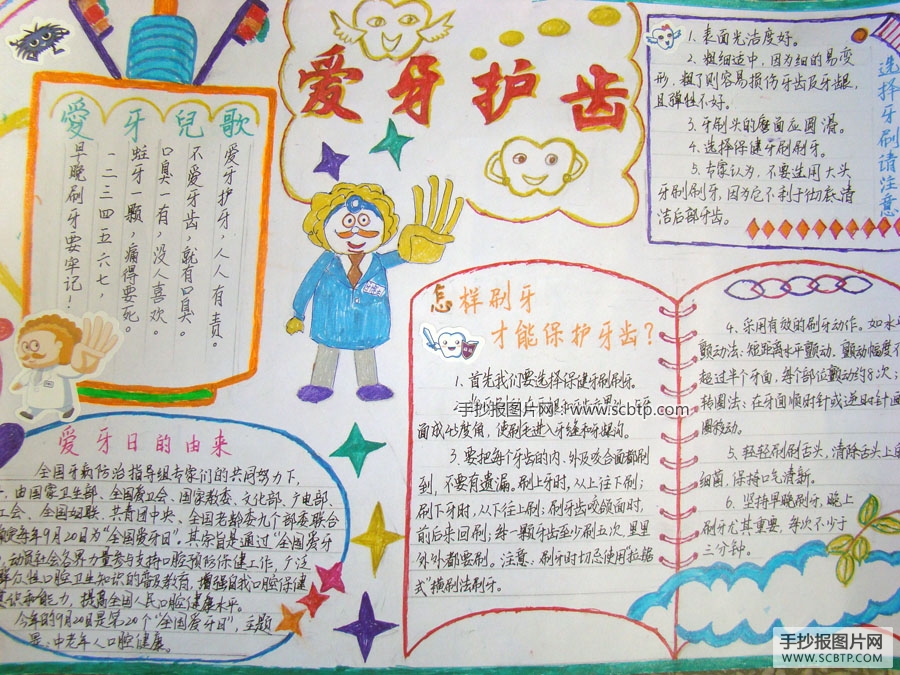 爱牙护齿
愛牙兒歌
爱牙护牙，人人有责。
不爱牙齿，就有口臭。
口臭一有，没人喜欢。
蛀牙一颗，痛得要死。
一二三四五六七，
早晚刷牙要牢记！
选择牙刷请注意
1. 表面光洁度好。
2. 粗细适中，因为细的易变
形，粗了则容易损伤牙齿及牙龈，
且弹性不好。
3. 牙刷头的磨面应圆滑。
4. 选择保健牙刷刷牙。
5. 专家认为，不要选用大头
牙刷刷牙，因为它不利于彻底清
洁后部牙齿。
怎样刷牙
才能保护牙齿？
1. 首先我们要选择保健牙刷刷牙。
手抄报图片网 www.scbtp.com
面成45度角，使刷毛进入牙缝和牙龈沟。
3. 要把每个牙齿的内、外及咬合面都刷
到，不要有遗漏。刷上牙时，从上往下刷；
刷下牙时，从下往上刷；刷牙齿咬颌面时，
前后来回刷；每一颗牙齿至少刷五次，里里
外外都要刷。注意，刷牙时切忌使用“拉锯
式”横刷法刷牙。
4. 采用有效的刷牙动作。如水平
颤动法：短距离水平颤动，颤动幅度不
超过半个牙面，每个部位颤动约8次；
转圈法：在牙面顺时针或逆时针画
圈移动。
5. 轻轻刷刷舌头，清除舌头上的
细菌，保持口气清新。
6. 坚持早晚刷牙，晚上
刷牙尤其重要，每次不少于
三分钟。
爱牙日的由来
全国牙病防治指导组专家们的共同努力下，
由国家卫生部、全国爱卫会、国家教委、文化部、广电部、
工会、全国妇联、共青团中央、全国老龄委九个部委联合
每年9月20日为“全国爱牙日”，其宗旨是通过“全国爱牙
动员社会各界力量参与支持口腔预防保健工作，广泛
群众性口腔卫生知识的普及教育，增强自我口腔保健
意识和能力，提高全国人民口腔健康水平。
今年的9月20日是第20个“全国爱牙日”，主题
是：中老年人口腔健康。
手抄报图片网
WWW.SCBTP.COM